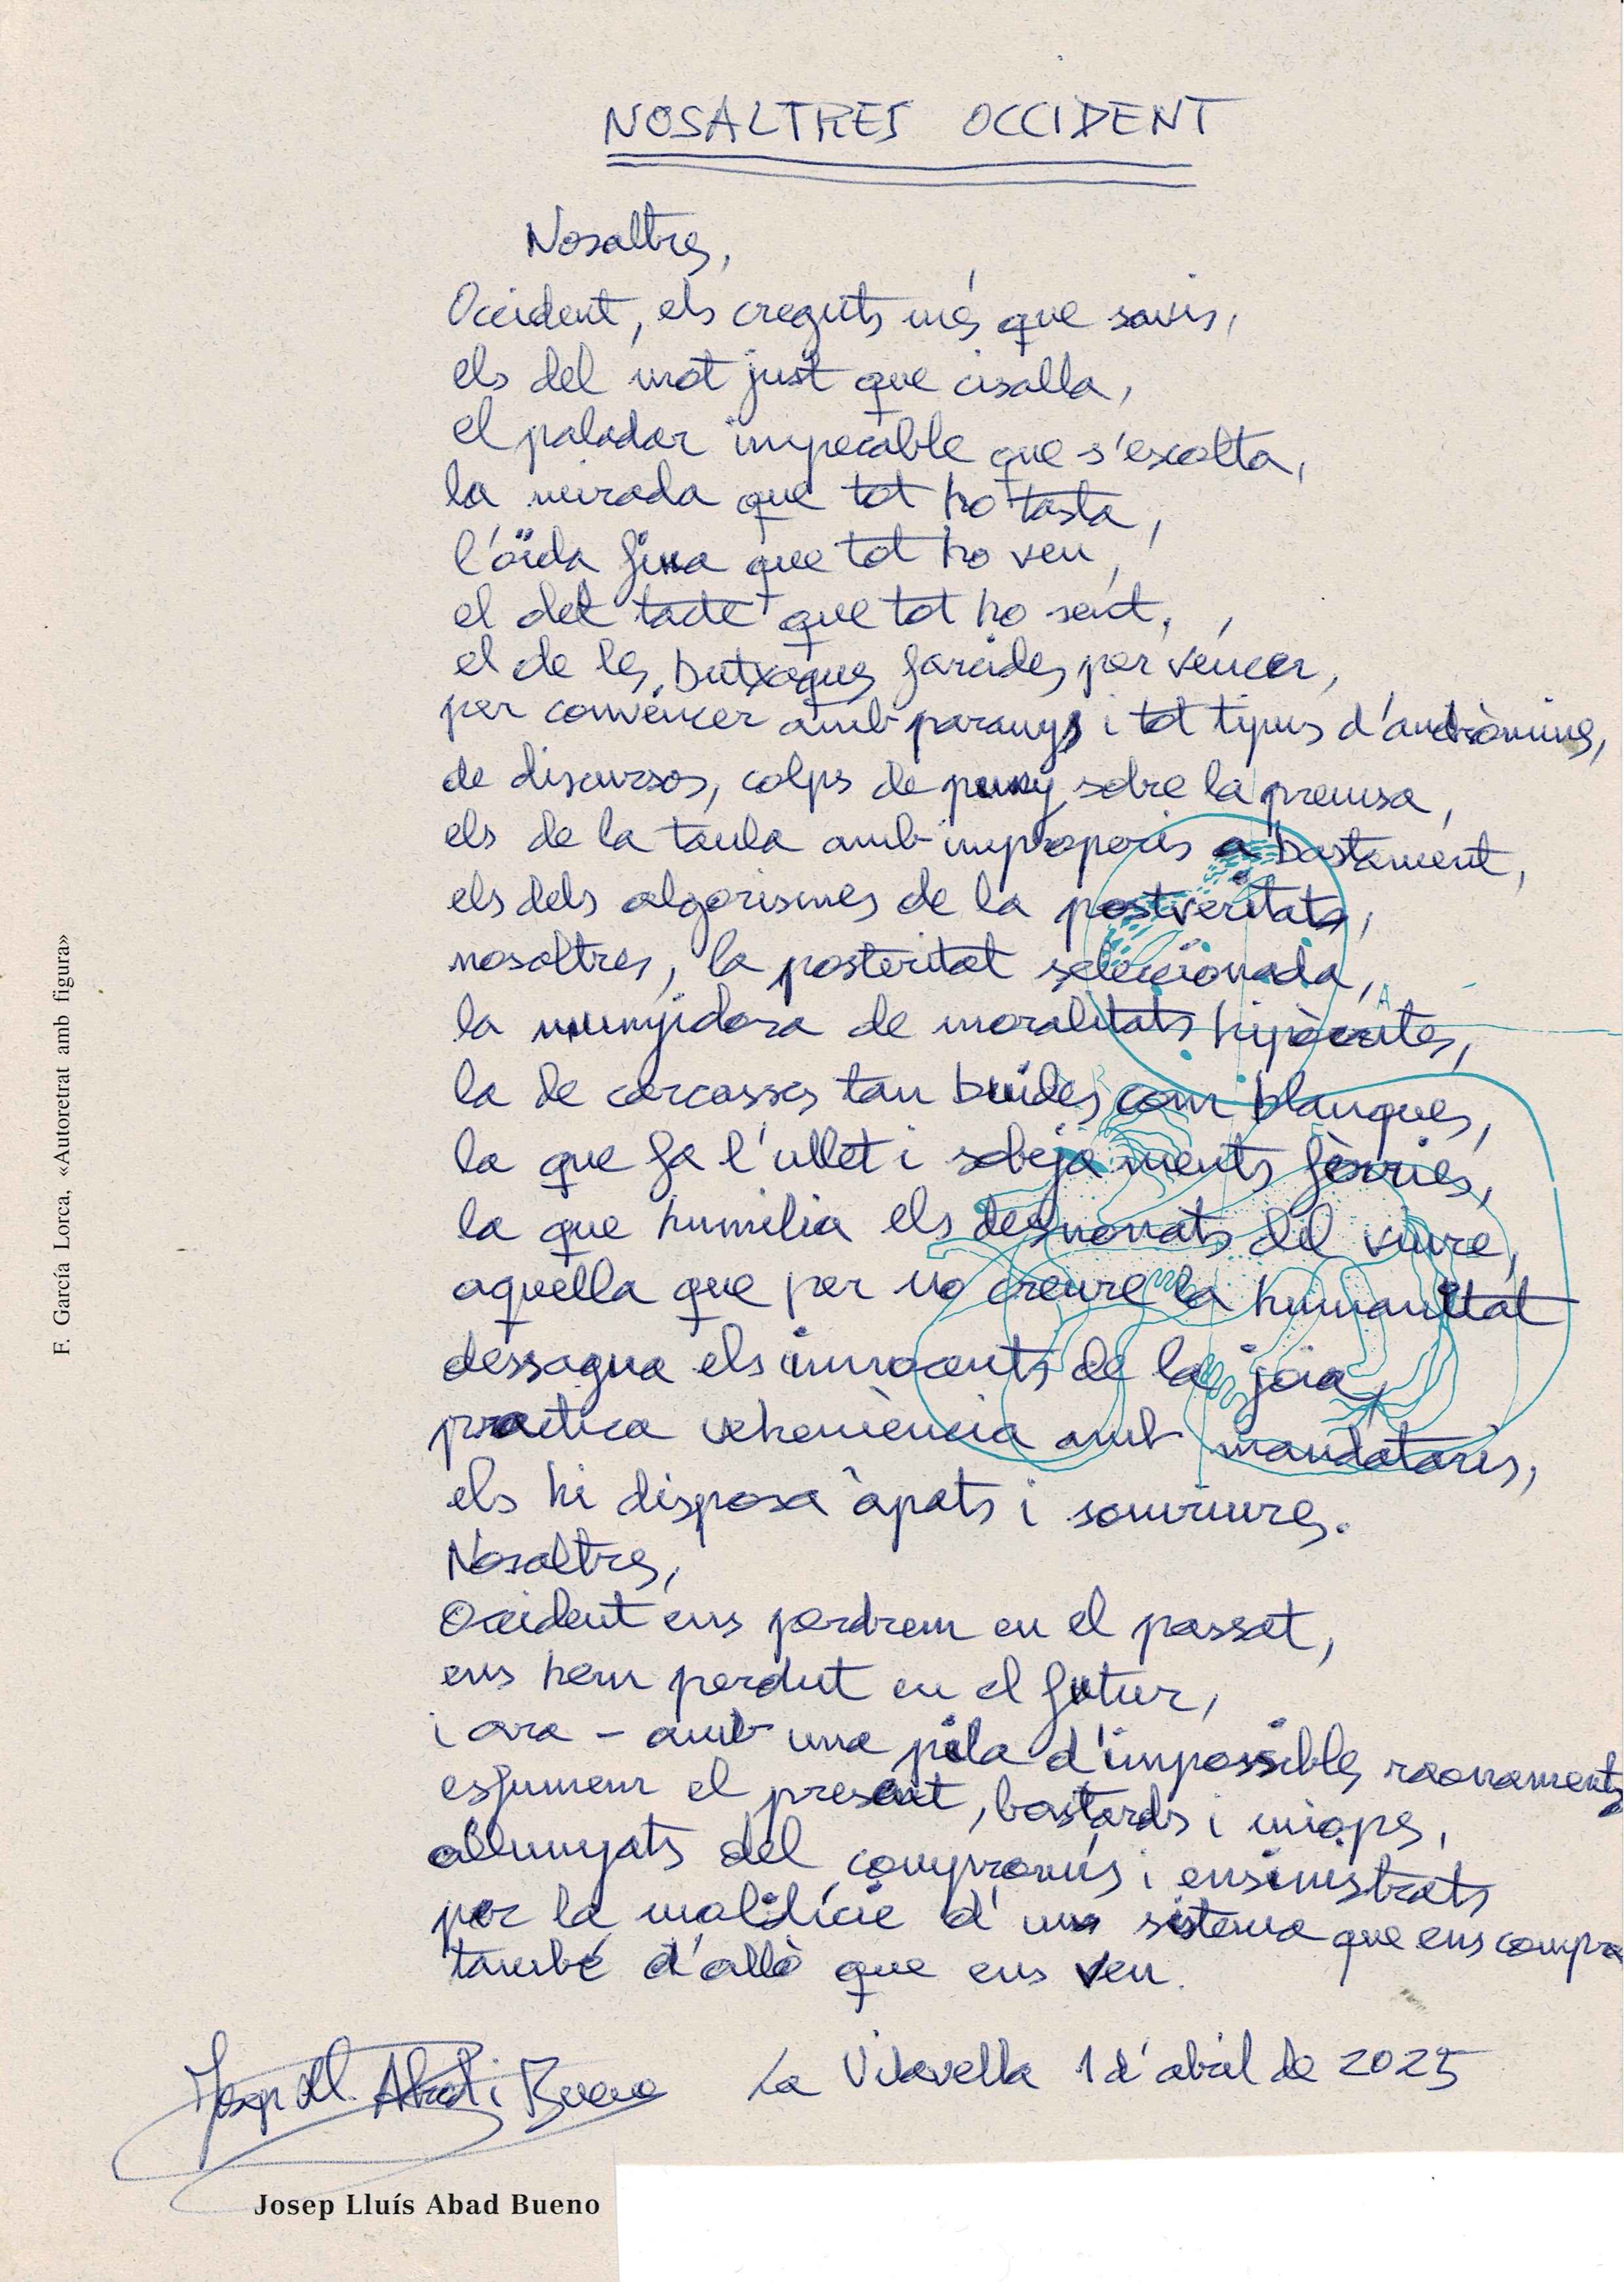 NOSALTRES OCCIDENT
Nosaltres,
Occident, els creguts més que savis,
els del mot just que cisalla,
el paladar impecable que s'escolta,
la mirada que tot ho tasta,
l'oïda fina que tot ho veu,
el det tacte que tot ho sent,
el de les butxaques farcides per véncer,
per convéncer amb paranys i tot tipus d'andròmines,
de discursos, colps de puny sobre la premsa,
els de la taula amb improperis a bastament,
els dels algorismes de la postveritats,
nosaltres, la posteritat seleccionada,
la munyidora de moralitats hipòcrites,
la de carcasses tan buides com blanques,
la que fa l'ullet i sobeja ments fèrries,
la que humilia els desnonats del viure,
aquella que per no creure la humanitat
dessagna els innocents de la joia,
practica vehemència amb mandataris,
els hi disposa àpats i somriures.
Nosaltres,
Occident ens perdrem en el passat,
ens hem perdut en el futur,
i ara – amb una pila d'impossibles raonaments
esfumem el present, bastards i miops,
allunyats del compromís i ensinistrats
per la malifície d'un sistema que ens compra
també d'allò que ens ven.
Josep Ll. Abad i Bueno
La Vilavella 1 d'abril de 2025
Josep Lluís Abad Bueno
F. García Lorca, «Autoretrat amb figura»